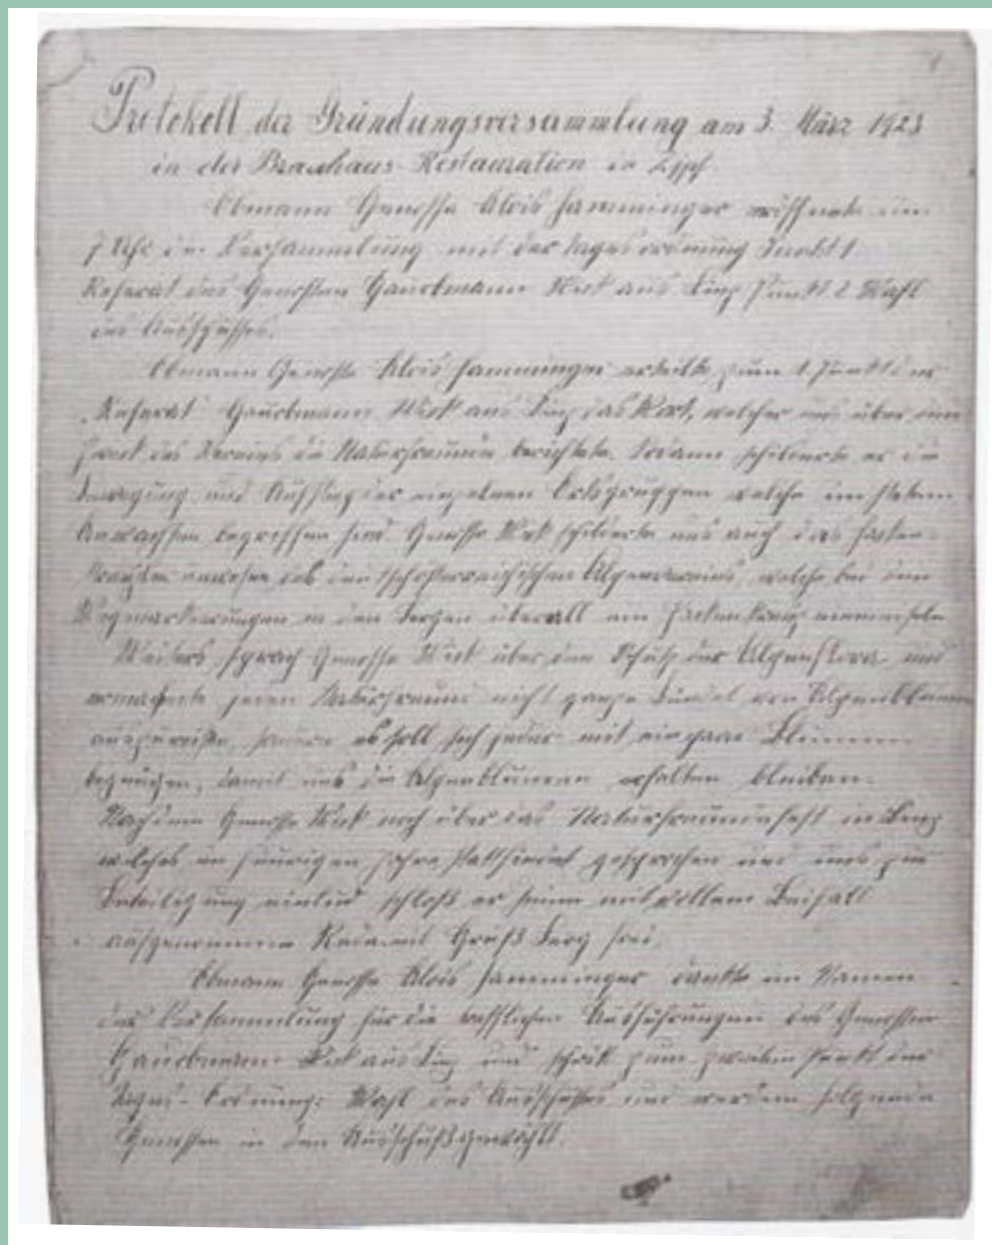 Protokoll der Gründungsversammlung am 3. März 1923
in der Brauhaus-Restauration in Zipf.
Obmann Genosse Alois Hamminger eröffnete um
7 Uhr die Versammlung mit der Tagesordnung Punkt 1
Referat des Genossen Gauobmann aus Linz Punkt 2 Wahl
des Ausschusses.
Obmann Genosse Alois Hamminger erteilte zum 1. Punkt der
"Referat" Gauobmann aus Linz das Wort, welcher uns über den
Zweck des Vereins die Naturfreunde berichtete. Sodann schilderte er die
Bewegung und der einzelnen Ortsgruppen welche im steten
Anwachsen begriffen sind. Genosse schilderte uns auch das Haken-
kreuzler des deutschösterreichischen Alpenvereins, welche bei den
Wegmarkierungen in den Bergen überall ein Hakenkreuz
Weiters sprach Genosse über den Schutz der Alpenflora und
ermahnte jeden Naturfreund nicht ganze Bündel von Alpenblumen
auszureißen, sondern es soll sich jeder mit ein paar Blumen
begnügen, damit uns die Alpenblumen erhalten bleiben.
Nachdem Genosse noch über das Naturfreundefest in Linz
welches im heurigen Jahre stattfindet gesprochen und uns zur
Beteiligung einlud schloß er seine mit vollem Beifall
aufgenommene Rede mit Gruß Berg frei.
Obmann Genosse Alois Hamminger dankte im Namen
der Versammlung für die trefflichen Ausführungen des Genossen
Gauobmann aus Linz und schritt zum zweiten Punkt der
Tages-Ordnung: Wahl des Ausschusses und wurden folgende
Genossen in den Ausschuß gewählt.